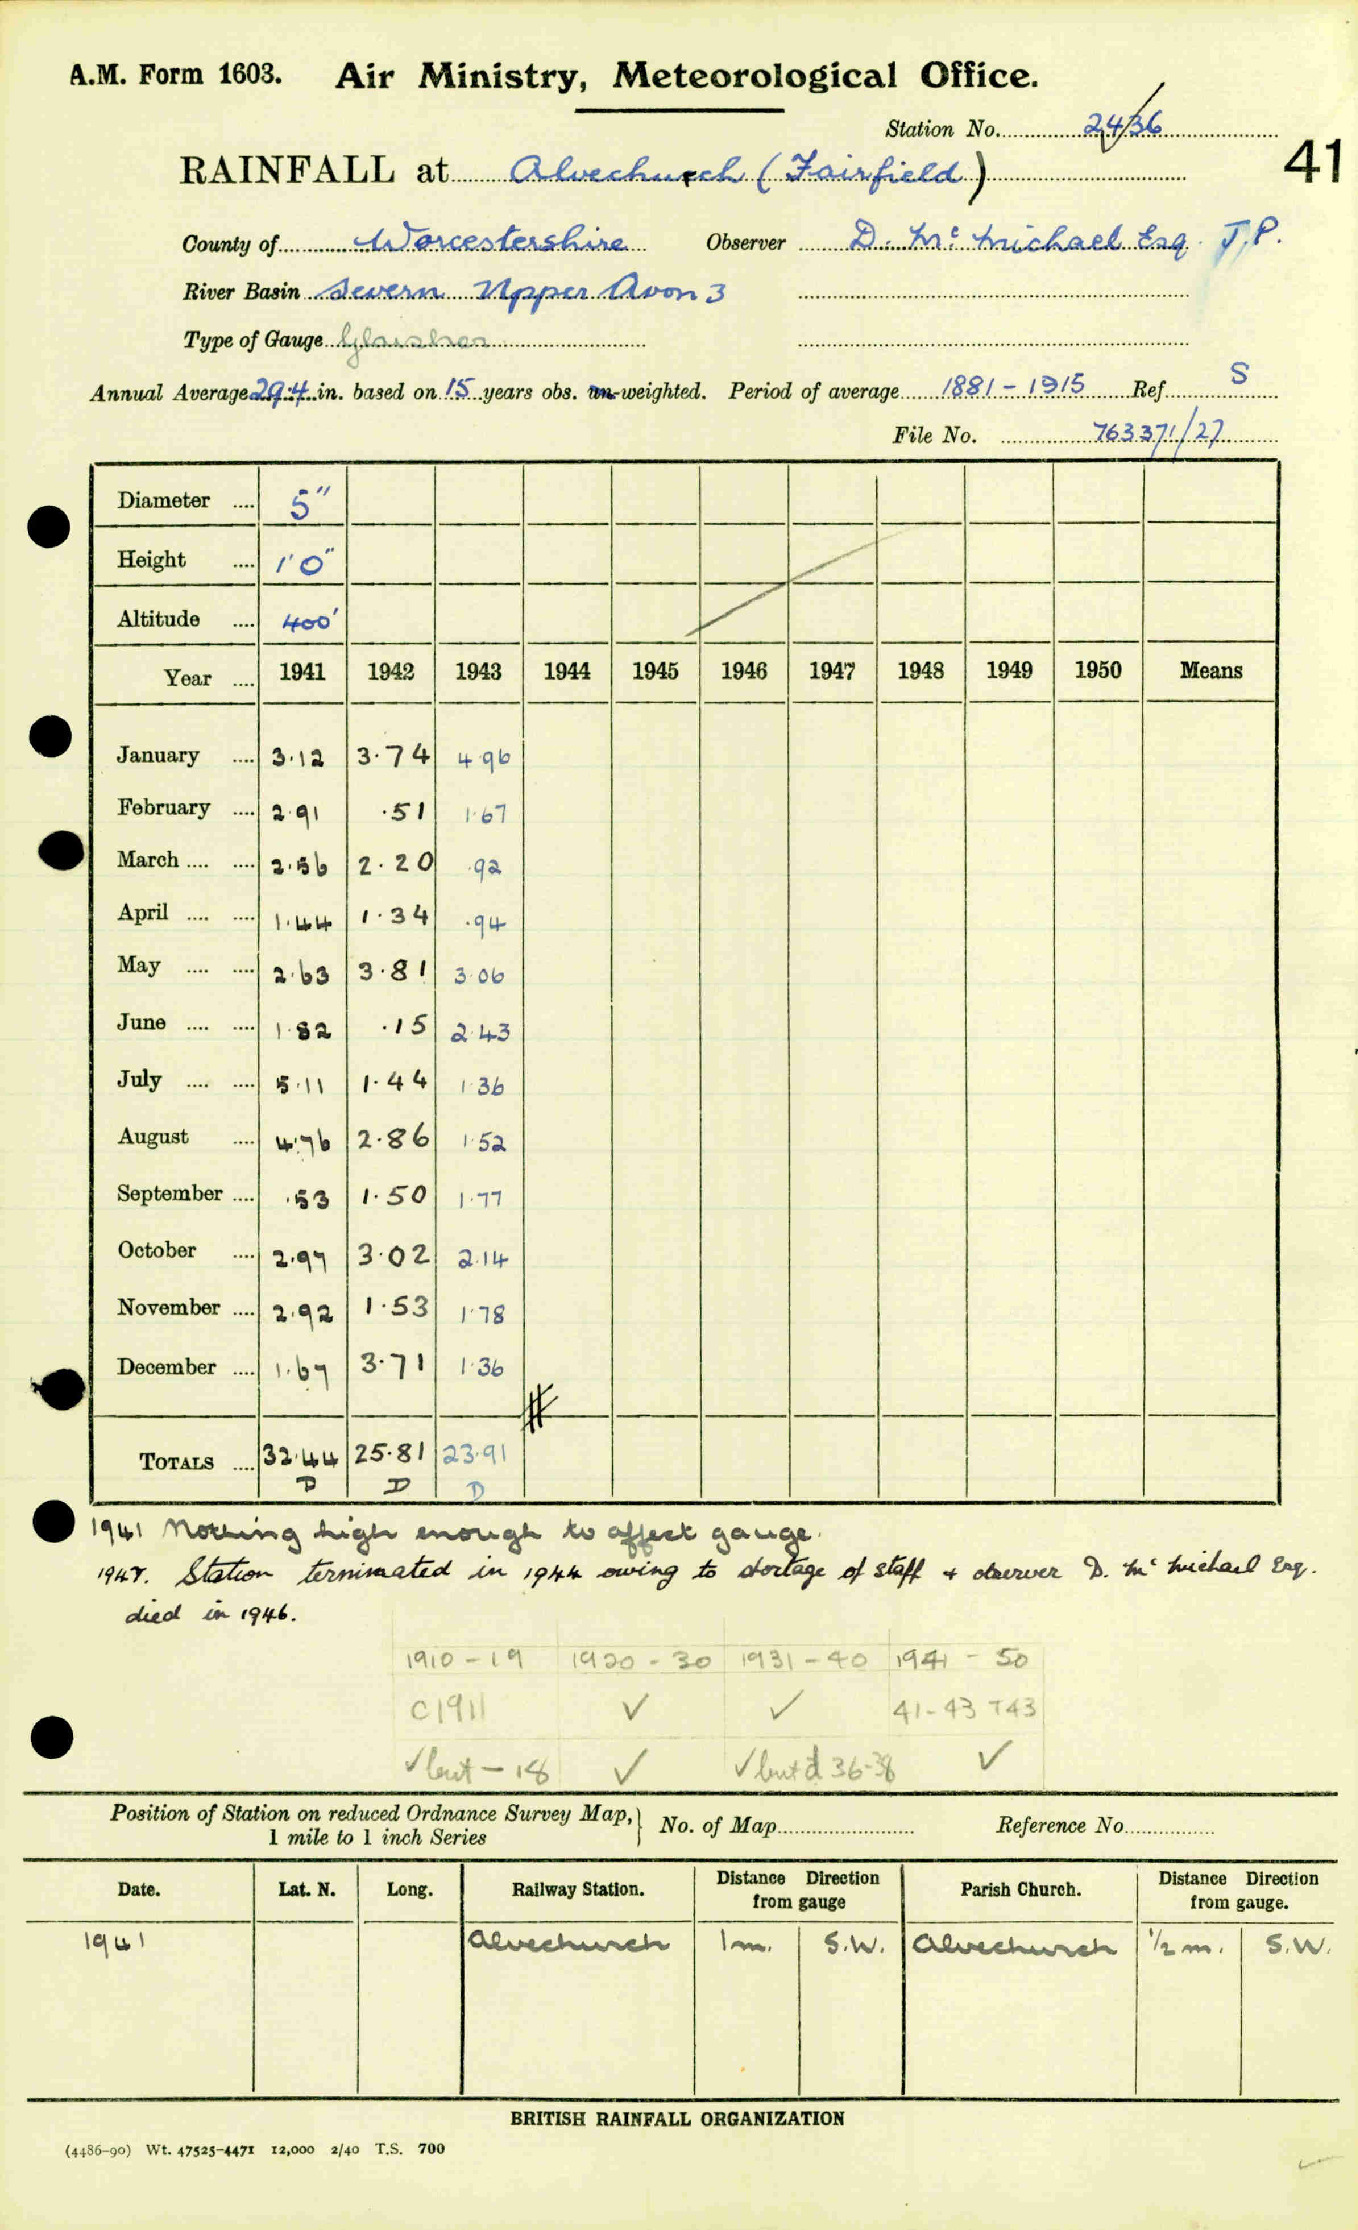 A.M. Form 1603. Air Ministry, Meteorological Office.
Station No. 2436
41
RAINFALL at Alvechurch (Fairfield)
County of Worcestershire Observer D. Mc Michael Esq. J.P.
River Basin Severn Upper Avon 3
Type of Gauge Glaisher
Annual Average 29.4 in. based on 15 years obs. un-weighted. Period of average 1881 - 1915 Ref. S
File No. 763371/27
Diameter .... 5"
Height .... 1'0"
Altitude .... 400'
Year .... 1941 1942 1943 1944 1945 1946 1947 1948 1949 1950 Means
January .... 3.12 3.74 4.96
February .... 2.91 .51 1.67
March .... .... 2.56 2.20 .92
April .... .... 1.44 1.34 .94
May .... .... 2.63 3.81 3.06
June .... .... 1.82 .15 2.43
July .... .... 5.11 1.44 1.36
August .... 4.76 2.86 1.52
September .... .53 1.50 1.77
October .... 2.97 3.02 2.14
November .... 2.92 1.53 1.78
December .... 1.67 3.71 1.36
TOTALS .... 32.44 25.81 23.91
D D D
1941 Nothing high enough to affect gauge.
1947. Station terminated in 1944 owing to shortage of staff + observer D. Mc Michael Esq.
died in 1946.
1910 - 19 1920 - 30 1931 - 40 1941 - 50
C1911 ✓ ✓ 41-43 T43
✓ but - 18 ✓ ✓ but d 36-38 ✓
Position of Station on reduced Ordnance Survey Map, } No. of Map Reference No.
1 mile to 1 inch Series
Date. Lat. N. Long. Railway Station. Distance Direction from gauge Parish Church. Distance Direction from gauge.
1941 Alvechurch 1 m. S.W. Alvechurch 1/2 m. S.W.
BRITISH RAINFALL ORGANIZATION
(4486-90) Wt. 47525-4471 12,000 2/40 T.S. 700